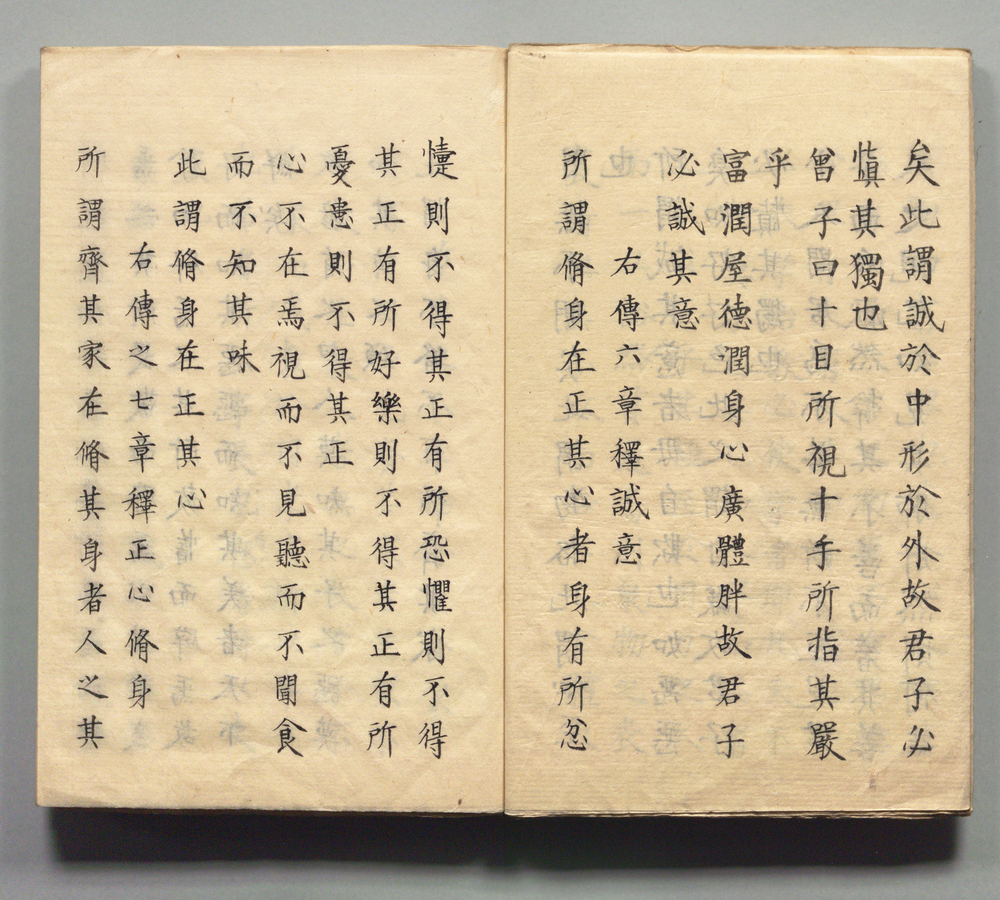 矣此謂誠於中形於外故君子必
慎其獨也
曾子曰十目所視十手所指其嚴
乎
富潤屋德潤身心廣體胖故君子
必誠其意
右傳六章釋誠意
所謂脩身在正其心者身有所忿
懥則不得其正有所恐懼則不得
其正有所好樂則不得其正有所
憂患則不得其正
心不在焉視而不見聽而不聞食
而不知其味
此謂脩身在正其心
右傳之七章釋正心脩身
所謂齊其家在脩其身者人之其